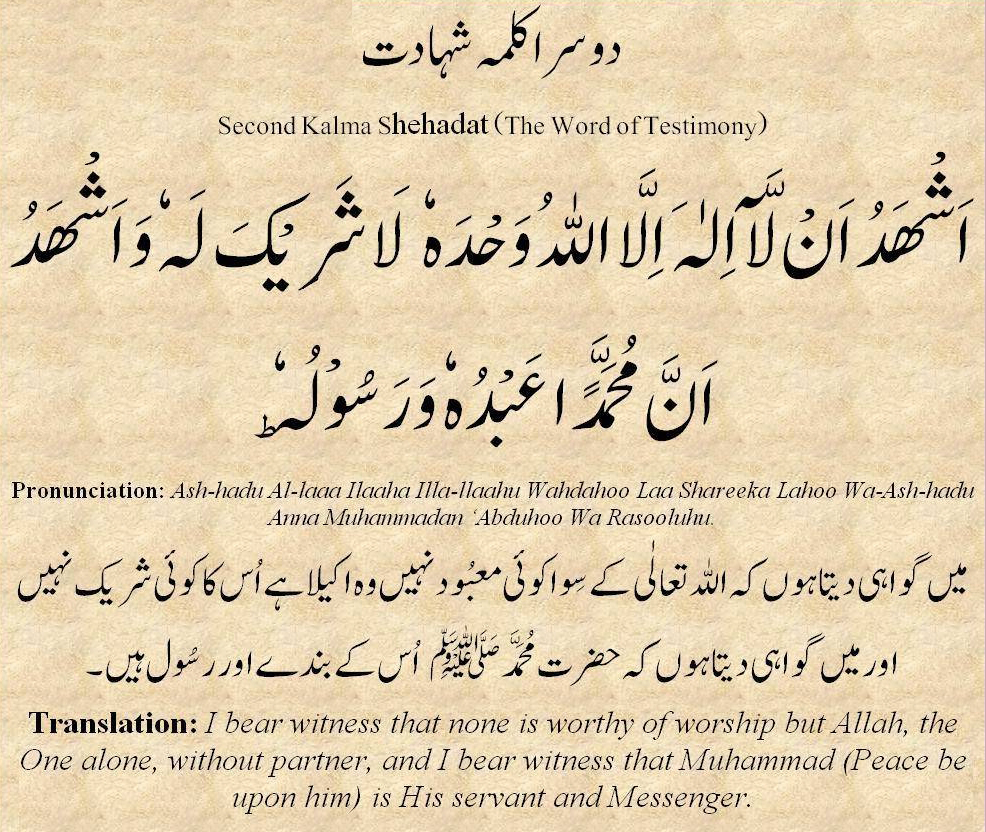 دوسرا کلمہ شہادت
Second Kalma Shehadat (The Word of Testimony)
اَشْهَدُ اَنْ لَّآ اِلٰہَ اِلَّا اللّٰہُ وَحْدَہٗ لَا شَرِیْکَ لَہٗ وَاَشْهَدُ
اَنَّ مُحَمَّدًا عَبْدُہٗ وَرَسُوْلُہٗ ؕ
Pronunciation: Ash-hadu Al-laaa Ilaaha Illa-llaahu Wahdahoo Laa Shareeka Lahoo Wa-Ash-hadu
Anna Muhammadan ‘Abduhoo Wa Rasooluhu.
میں گواہی دیتا ہوں کہ اللہ تعالٰی کے سِوا کوئی معبُود نہیں وہ اکیلا ہے اُس کا کوئی شریک نہیں
اور میں گواہی دیتا ہوں کہ حضرت مُحمَّد ﷺ اُس کے بندے اور رسُول ہیں۔
Translation: I bear witness that none is worthy of worship but Allah, the
One alone, without partner, and I bear witness that Muhammad (Peace be
upon him) is His servant and Messenger.